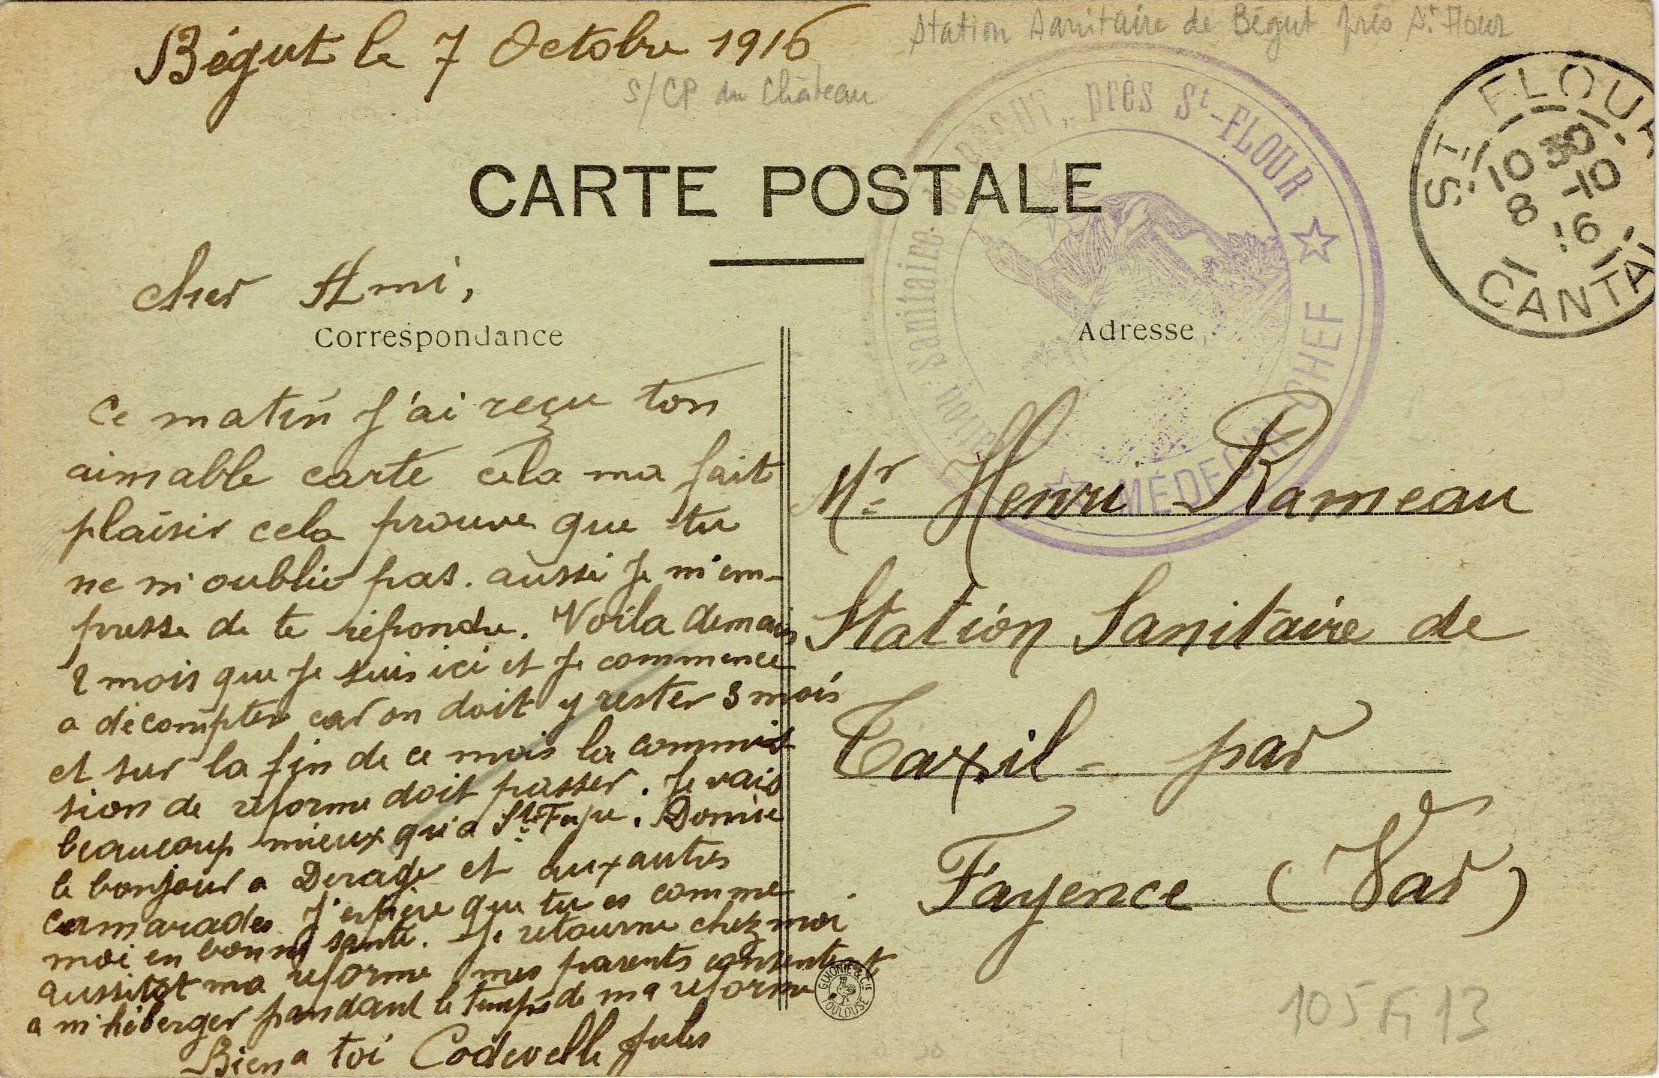 Bégut le 7 Octobre 1916
Station Sanitaire de Bégut près St Flour
S/CP du Château
CARTE POSTALE
Sanitaire de Bégut, près St-FLOUR
MÉDECIN CHEF
ST FLOUR
10 30
8 -10
16
CANTAL
Cher Ami,
Correspondance
Adresse
Ce matin j'ai reçu ton
aimable carte cela ma fait
plaisir cela prouve que tu
ne m'oublie pas. aussi je m'em-
presse de te répondre. Voila demain
2 mois que je suis ici et je commence
a décompter car on doit y rester 3 mois
et sur la fin de ce mois la commis
sion de réforme doit passer. Je vais
beaucoup mieux qu'a Donne
le bonjour a et aux autres
camarades J'espère que tu es comme
moi en bonne santé. Je retourne chez moi
aussitot ma reforme mes parents consentent
a m'héberger pandant le temps de ma reforme
Bien a toi Codevelle Jules
Mr Henri Rameau
Station Sanitaire de
Taxil - par
Fayence (Var)
TOULOUSE
105 Fi 13